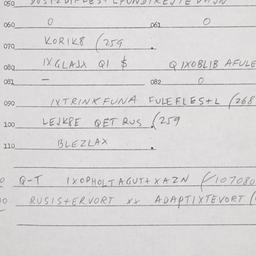 050
060 0 061 0
070 KORIK8 (259
080 IXGLAJX QI $ QIXOBLIB AFULE
081 – 082 0
090 IXTRINKFUNA FULEFLES+L (268
100 LEJKPE QET RUS (259
110 BLEZLAX
Q-T IXOPHOLTAGUT+XAZN (107080
RUSIS+ERVORT xx ADAPTIXTEVORT (